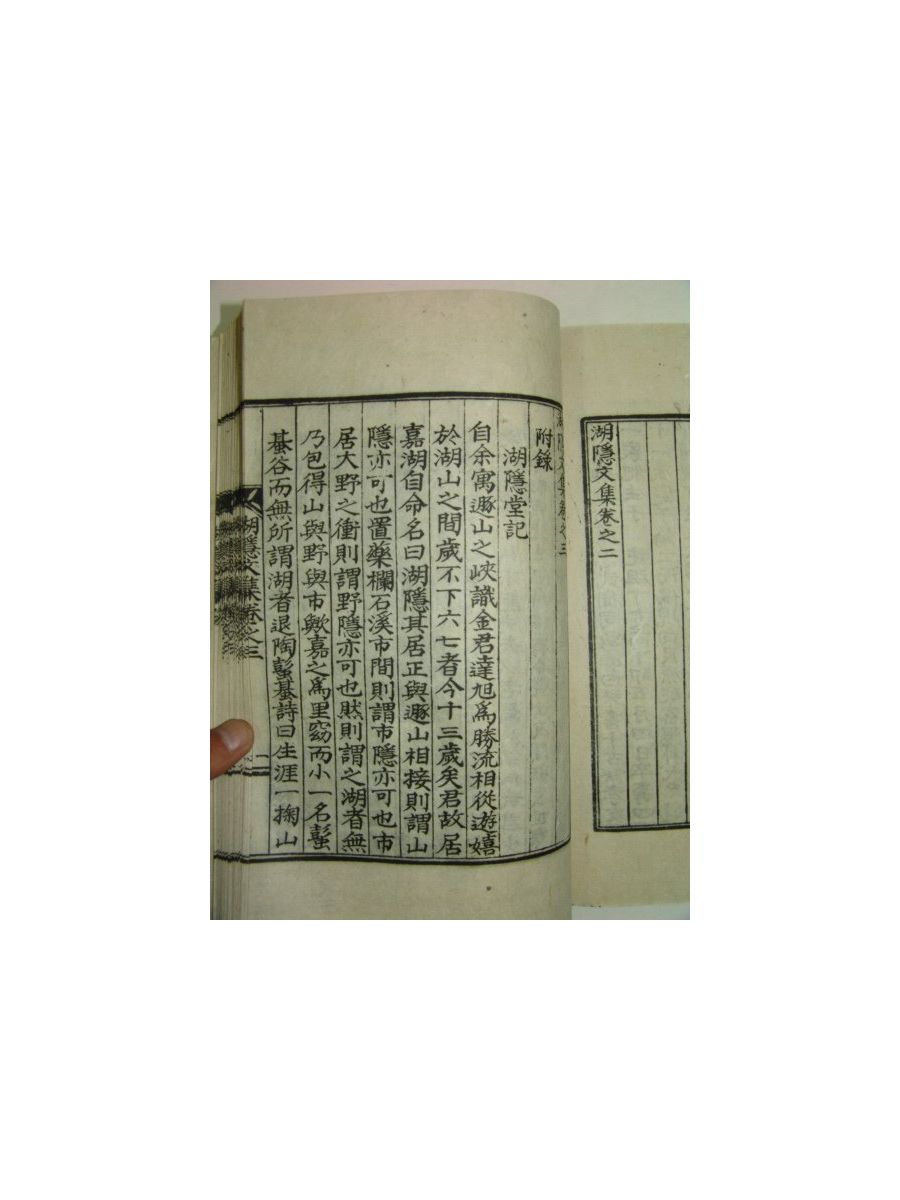 湖隱文集卷之二
湖隱文集卷之三
附錄
湖隱堂記
自余寓遯山之峽識金君達旭爲勝流相從遊嬉
於湖山之間歲不下六七者今十三歲矣君故居
嘉湖自命名曰湖隱其居正與遯山相接則謂山
隱亦可也置藥欄石溪市間則謂市隱亦可也市
居大野之衝則謂野隱亦可也然則謂之湖者無
乃包得山與野與市歟嘉之爲里窈而小一名蟚
蜞谷而無所謂湖者退陶蟚蜞詩曰生涯一掬山
湖隱文集卷之三
一